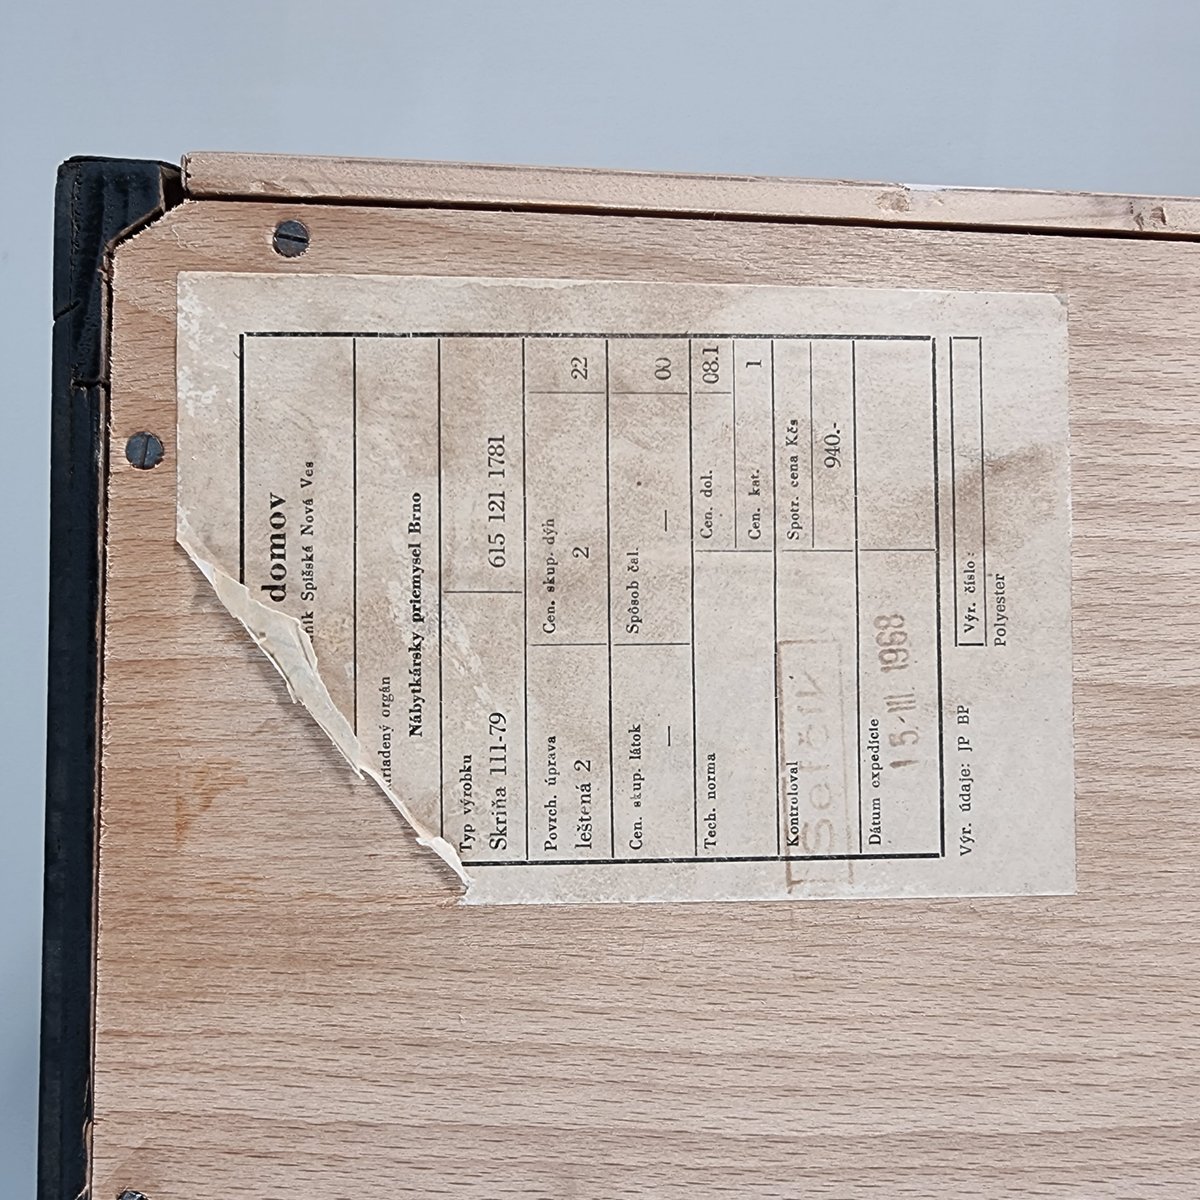 domov
Spišská Nová Ves
orgán
Nábytkársky priemysel Brno
Typ výrobku
Skriňa 111-79
615 121 1781
Povrch. úprava
leštená 2
Cen. skup. dýh
2
22
Cen. skup. látok
—
Spôsob čal.
—
00
Tech. norma
Cen. dol.
08.1
Cen. kat.
1
Kontroloval
Spotr. cena Kčs
940.-
Dátum expedície
15.III.1968
Výr. údaje: JP BP
Výr. číslo:
Polyester